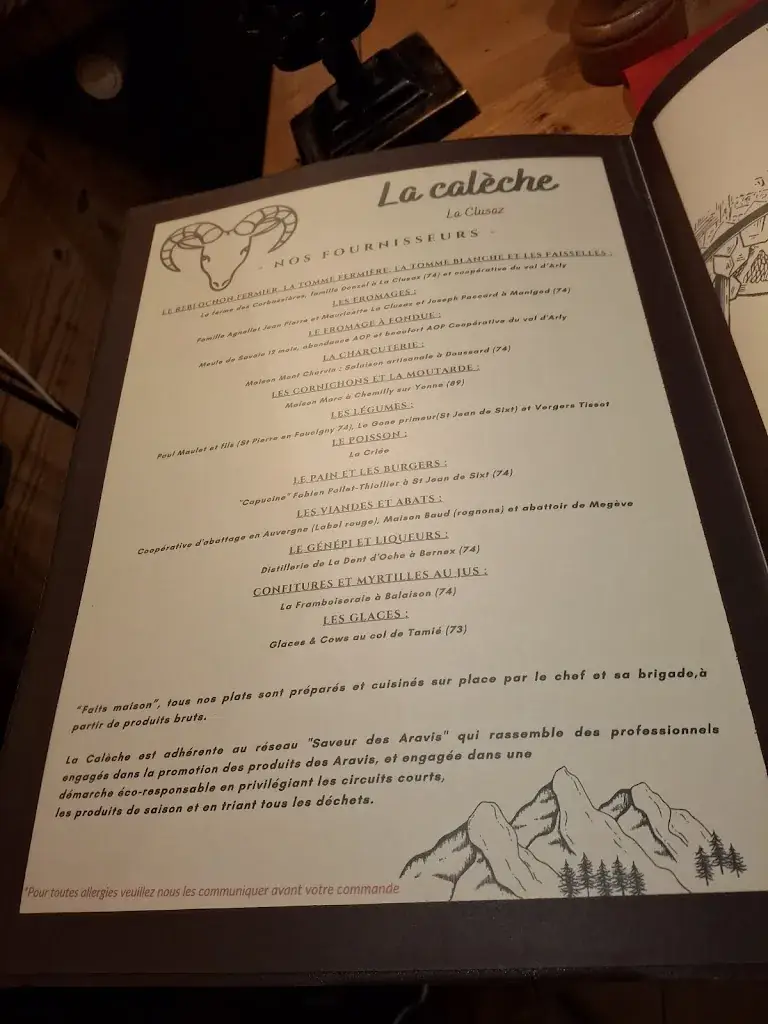 La calèche
La Clusaz
- NOS FOURNISSEURS -
LE REBLOCHON FERMIER, LA TOMME FERMIÈRE, LA TOMME BLANCHE ET LES FAISSELLES :
La ferme des Corbassières, famille Donzel à La Clusaz (74) et coopérative du val d'Arly
LES FROMAGES :
Famille Agnellet Jean Pierre et Mauricette La Clusaz et Joseph Paccard à Manigod (74)
LE FROMAGE À FONDUE :
Meule de Savoie 12 mois, abondance AOP et beaufort AOP Coopérative du val d'Arly
LA CHARCUTERIE :
Maison Mont Charvin : Salaison artisanale à Doussard (74)
LES CORNICHONS ET LA MOUTARDE :
Maison Marc à Chemilly sur Yonne (89)
LES LÉGUMES :
Paul Maulet et fils (St Pierre en Faucigny 74), Le Gone primeur(St Jean de Sixt) et Vergers Tissot
LE POISSON :
La Criée
LE PAIN ET LES BURGERS :
"Capucine" Fabien Pollet-Thiollier à St Jean de Sixt (74)
LES VIANDES ET ABATS :
Coopérative d'abattage en Auvergne (Label rouge), Maison Baud (rognons) et abattoir de Megève
LE GÉNÉPI ET LIQUEURS :
Distillerie de La Dent d'Oche à Bernex (74)
CONFITURES ET MYRTILLES AU JUS :
La Framboiseraie à Balaison (74)
LES GLACES :
Glaces & Cows au col de Tamié (73)
"Faits maison", tous nos plats sont préparés et cuisinés sur place par le chef et sa brigade,à
partir de produits bruts.
La Calèche est adhérente au réseau "Saveur des Aravis" qui rassemble des professionnels
engagés dans la promotion des produits des Aravis, et engagée dans une
démarche éco-responsable en privilégiant les circuits courts,
les produits de saison et en triant tous les déchets.
*Pour toutes allergies veuillez nous les communiquer avant votre commande